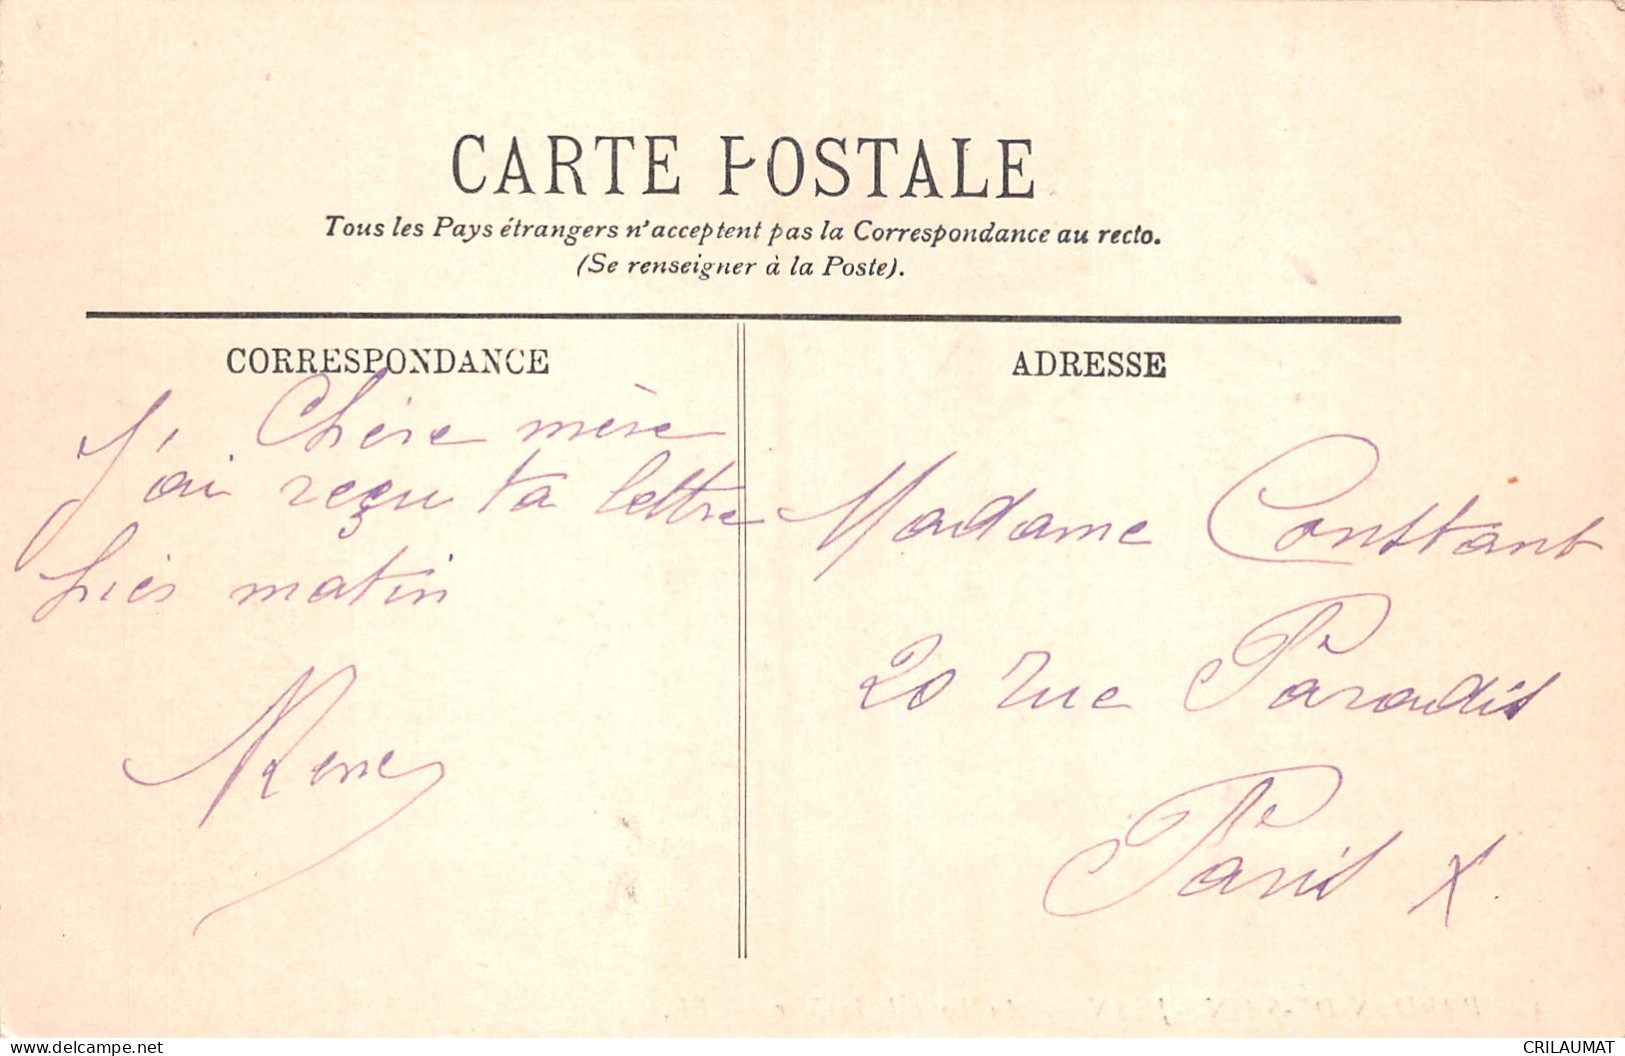 CARTE POSTALE
Tous les Pays étrangers n'acceptent pas la Correspondance au recto.
(Se renseigner à la Poste).
CORRESPONDANCE
Chère mère
J'ai reçu ta lettre
hier matin
René
ADRESSE
Madame Constant
20 rue Paradis
Paris X.
delcampe.net
CRILAUMAT